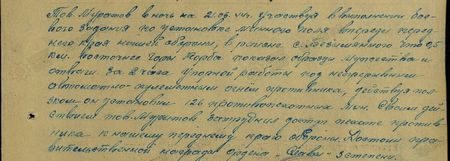 Тов. Муратов в ночь на 21.09.44г. участвуя в выполнении боевого
задания по установке минного поля впереди переднего
края нашей обороны, в районе с. что 0,5
км. восточнее горы показал образцы мужества и
отваги. За 2 часа упорной работы под непрерывным
автоматно-пулеметным огнем противника, действуя ползком
он установил 126 противопехотных мин. Своими действиями
тов. Муратов затруднил доступ пехоте противника
к нашему переднему краю обороны. Достоин правительственной
награды ордена "Слава" 3 степени.